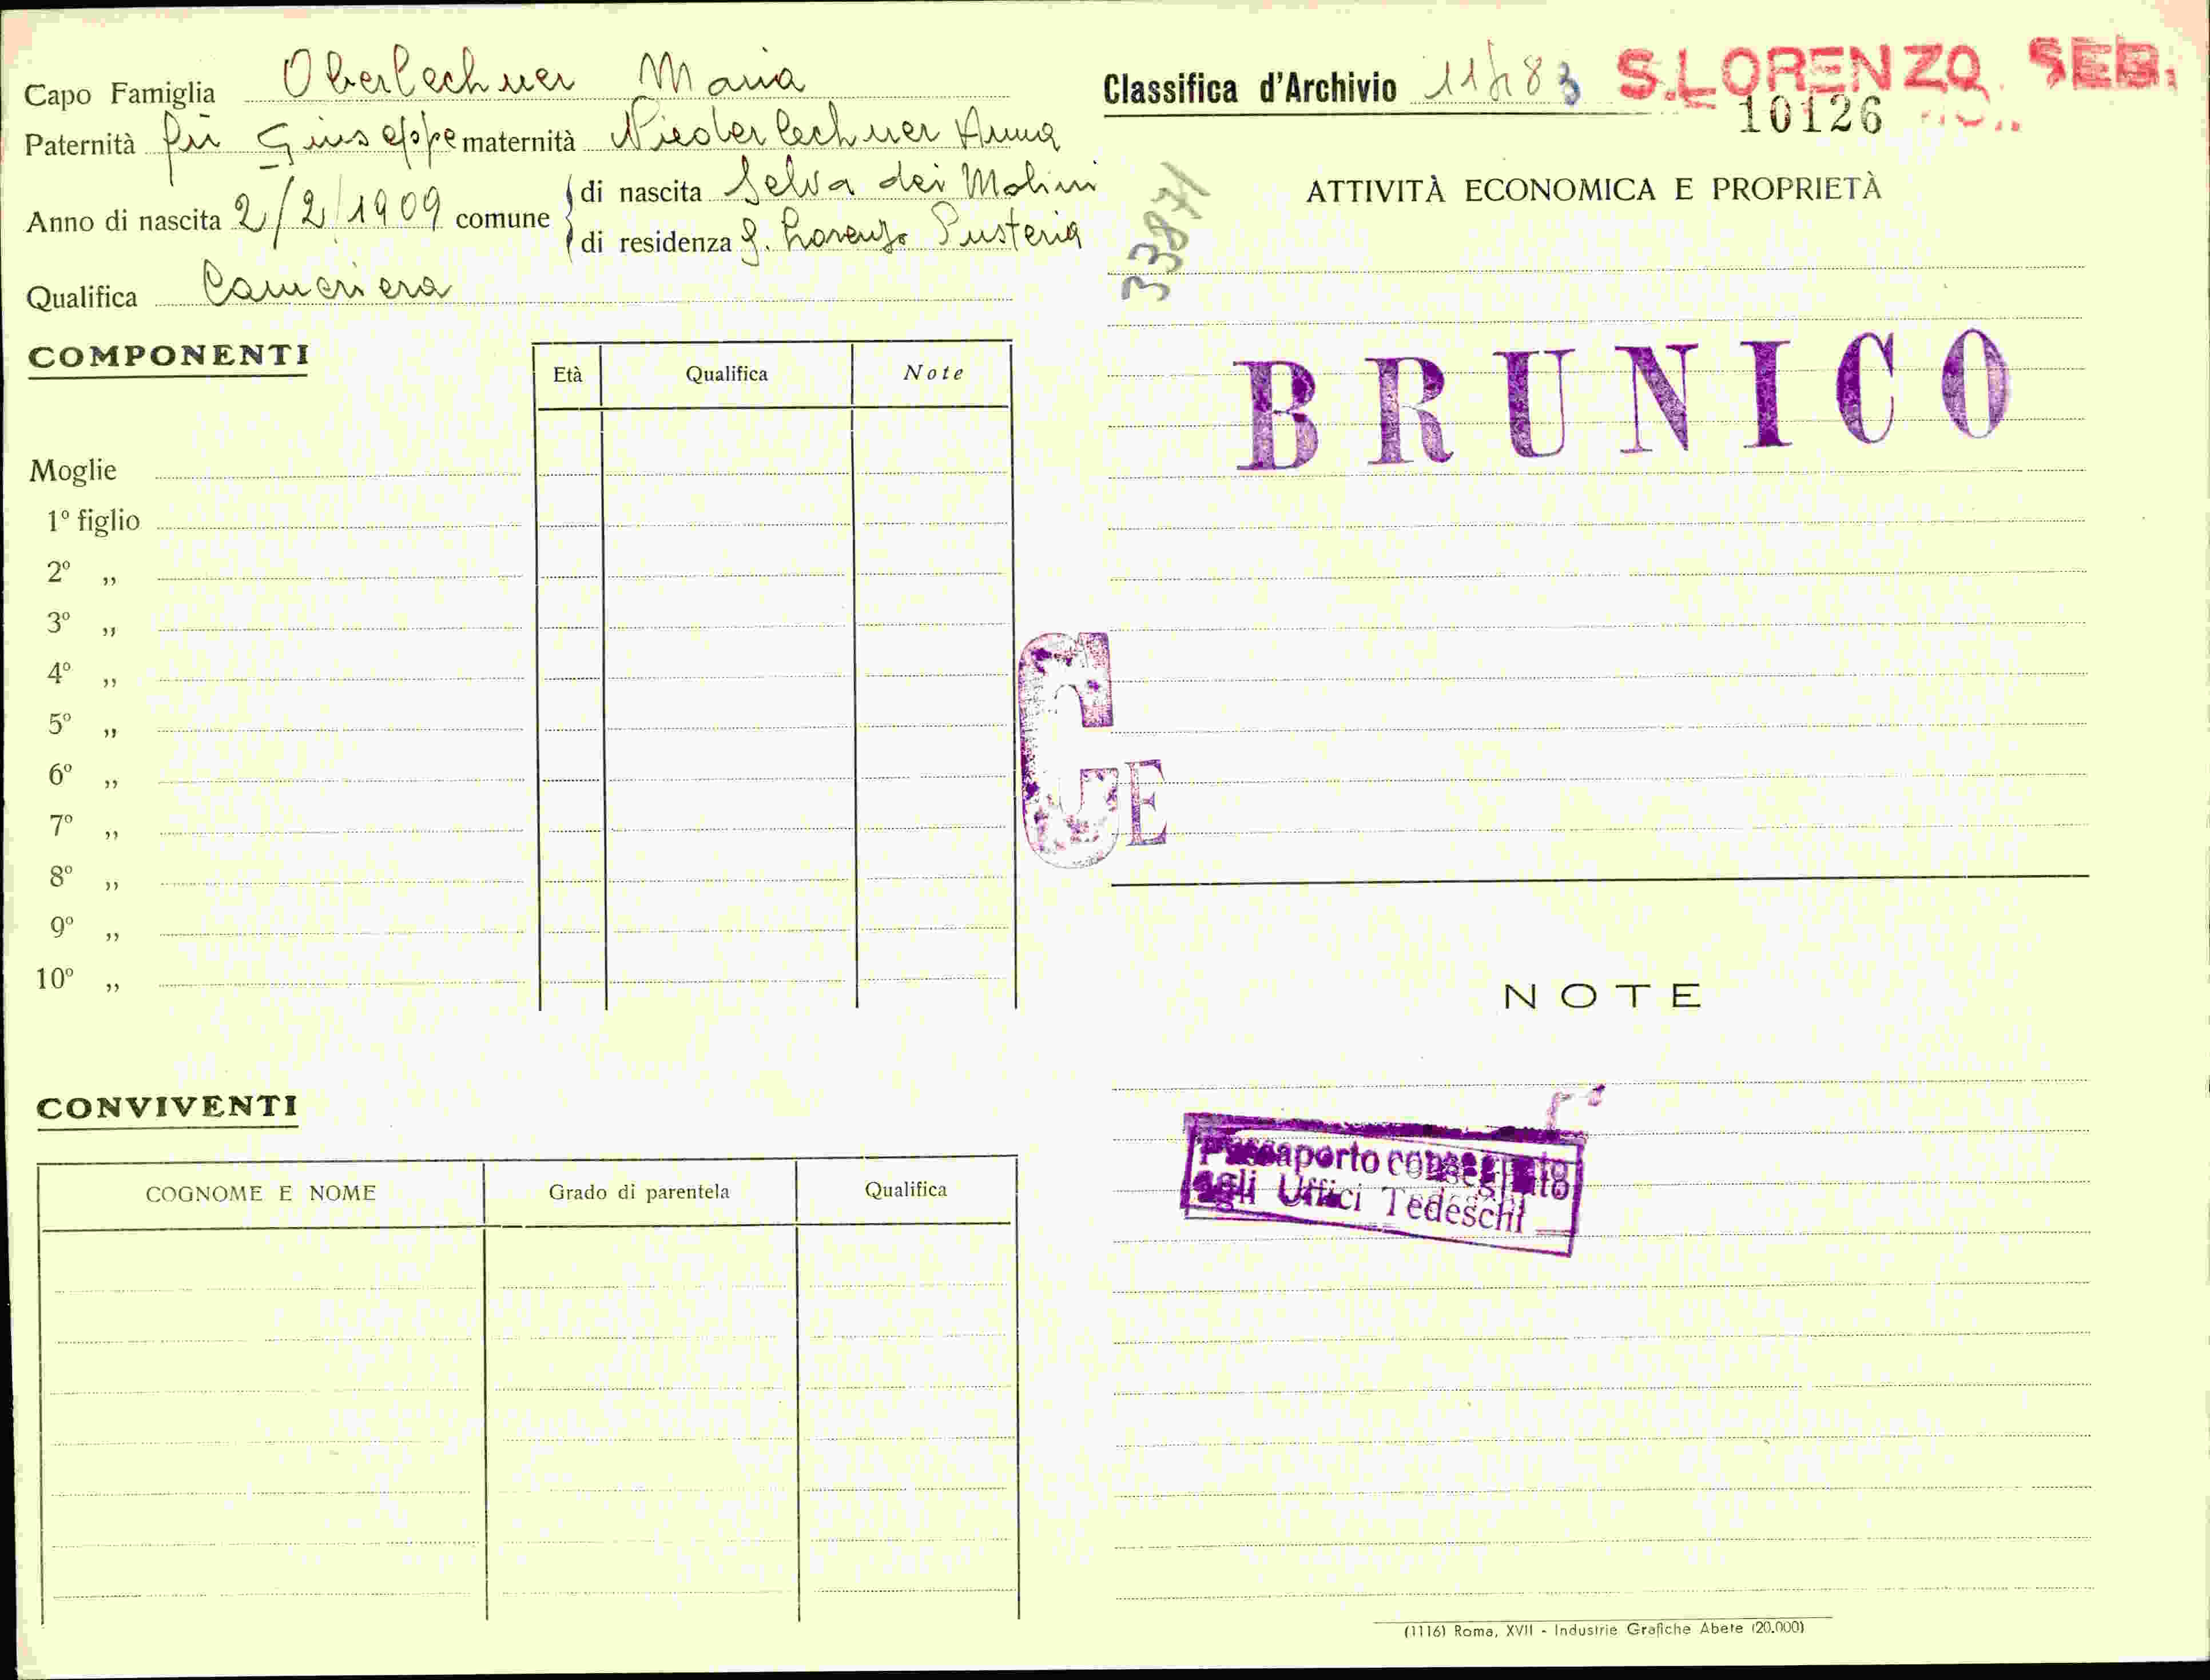 Capo Famiglia Oberlechner Maria
Paternità fu Giuseppe maternità Niederlechner Anna
Anno di nascita 2/2/1909 comune
di nascita Selva dei Molini
di residenza S. Lorenzo Pusteria
Qualifica Cameriera
COMPONENTI
Età Qualifica Note
Moglie
1º figlio
2º „
3º „
4º „
5º „
6º „
7º „
8º „
9º „
10º „
CONVIVENTI
COGNOME E NOME Grado di parentela Qualifica
Classifica d'Archivio
S.LORENZO SEB.
10126
33871
ATTIVITÀ ECONOMICA E PROPRIETÀ
BRUNICO
C E
NOTE
Passaporto consegnato
agli Uffici Tedeschi
(1116) Roma, XVII - Industrie Grafiche Abete (20.000)